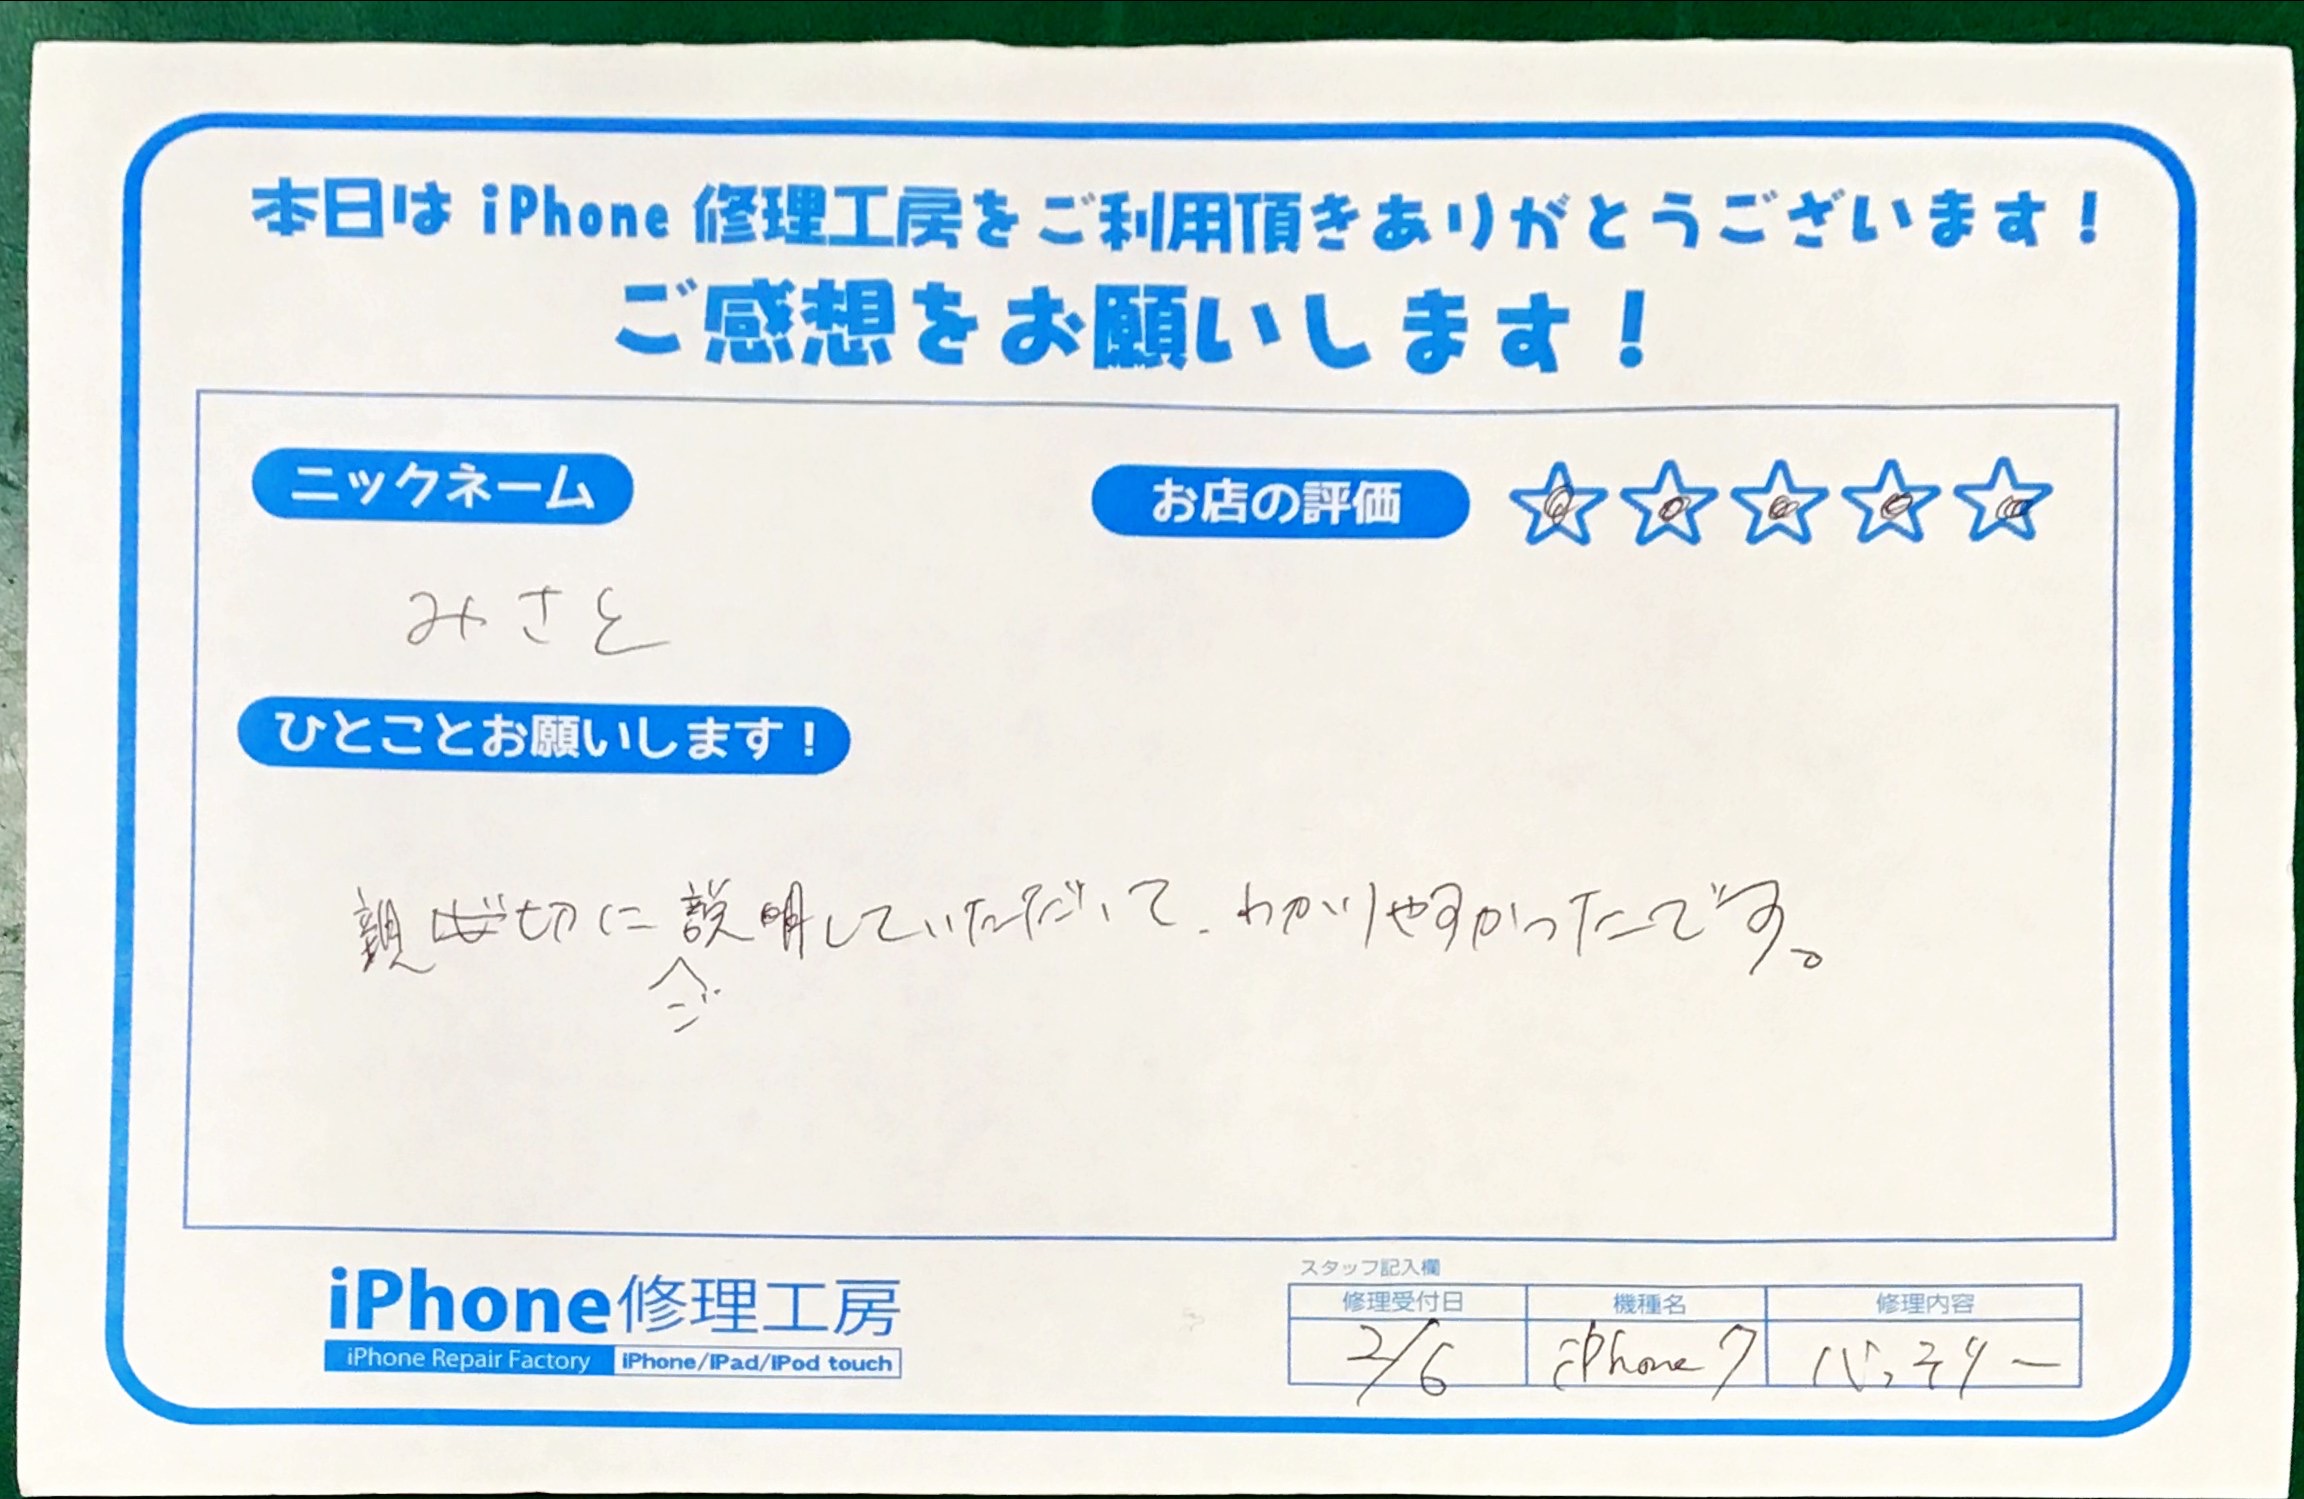 本日は iPhone 修理工房をご利用頂きありがとうございます！
ご感想をお願いします！
ニックネーム
お店の評価
みさと
ひとことお願いします！
親切に説明していただいて、わかりやすかったです。
iPhone修理工房
iPhone Repair Factory iPhone/iPad/iPod touch
スタッフ記入欄
修理受付日 機種名 修理内容
2/6 iPhone7 バッテリー